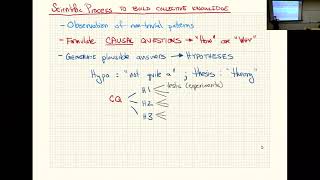 SCIENTIFIC PROCESS TO BUILD COLLECTIVE KNOWLEDGE
- Observation of non-trivial patterns
- Formulate CAUSAL QUESTIONS → "How" or "Why"
- GENERATE plausible answers → HYPOTHESES
Hypo = "not quite a" ; thesis : "theory"
tests (experiments)
CQ
H1
H2
H3